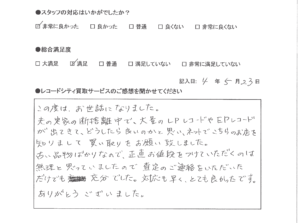 ●スタッフの対応はいかがでしたか？
☑非常に良かった □良かった □普通 □良くない □非常に良くない
●総合満足度
□大満足 ☑満足 □普通 □満足していない □非常に満足していない
記入日: 4年 5月 23日
●レコードシティ買取サービスのご感想を聞かせてください
この度は、お世話になりました。
夫の実家の断捨離中で、大量のLPレコードやEPレコード
が出てきて、どうしたら良いのかと思い、ネットでこちらのお店を
知りまして買い取りをお願い致しました。
古い品物ばかりなので、正直お値段をつけていただくのは
無理と思っていましたので査定のご連絡をいただいた
だけでも充分でした。対応も早く、とても良かったです。
ありがとうございました。